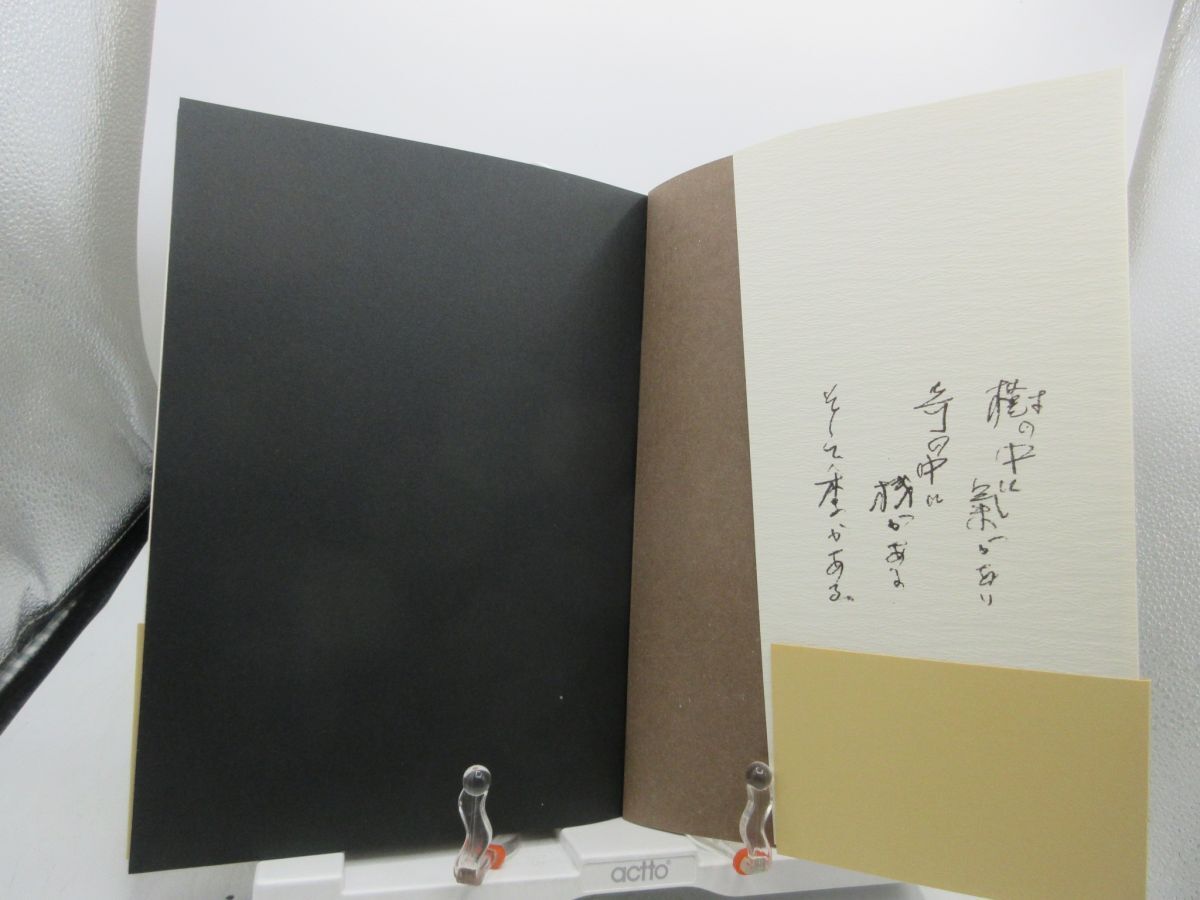 樹の中に
氣があり
奇の中に
機がある
そして季がある。
actto